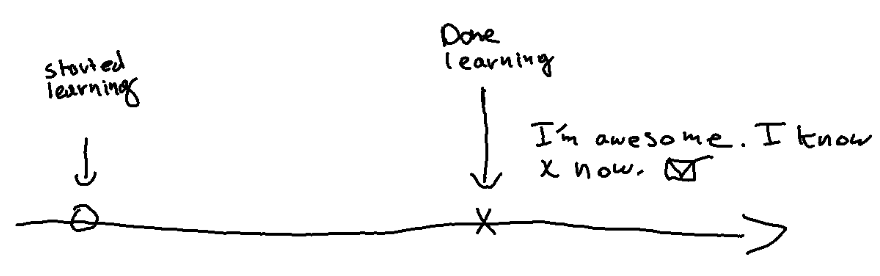 started
learning
Done
learning
I'm awesome. I know
x now. ☑